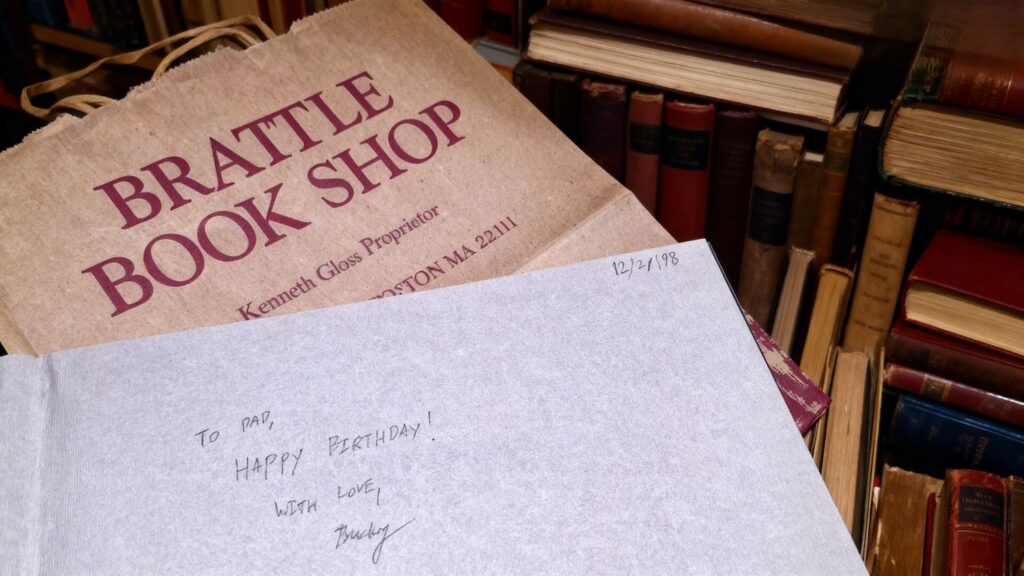 BRATTLE
BOOK SHOP
Kenneth Gloss Proprietor
BOSTON MA 22111
12/2/98
TO DAD,
HAPPY BIRTHDAY!
WITH LOVE,